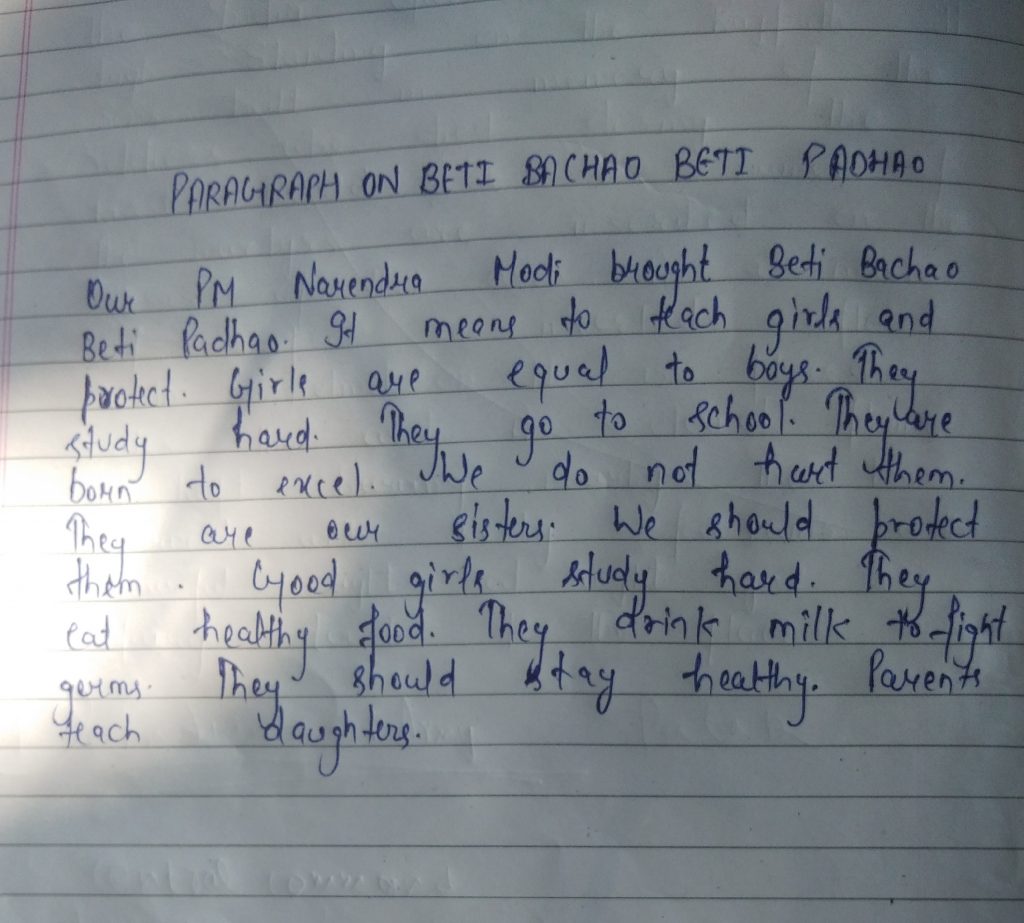 PARAGRAPH ON BETI BACHAO BETI PADHAO
Our PM Narendra Modi brought Beti Bachao
Beti Padhao. It means to teach girls and
protect. Girls are equal to boys. They
study hard. They go to school. They are
born to excel. We do not hurt them.
They are our sisters. We should protect
them. Good girls study hard. They
eat healthy food. They drink milk to fight
germs. They should stay healthy. Parents
teach daughters.